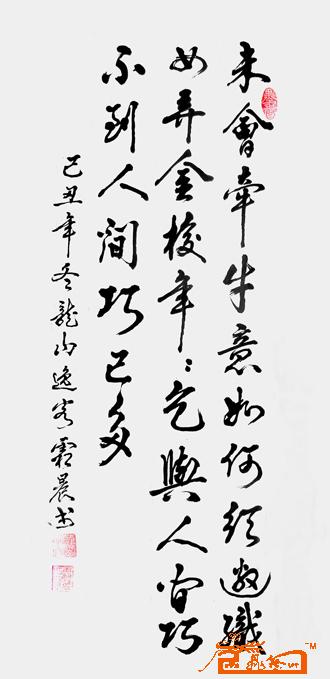 未會牽牛意如何須邀織
女弄金梭年〻乞與人間巧
不到人間巧已多
己丑年冬龍山逸客霜晨書